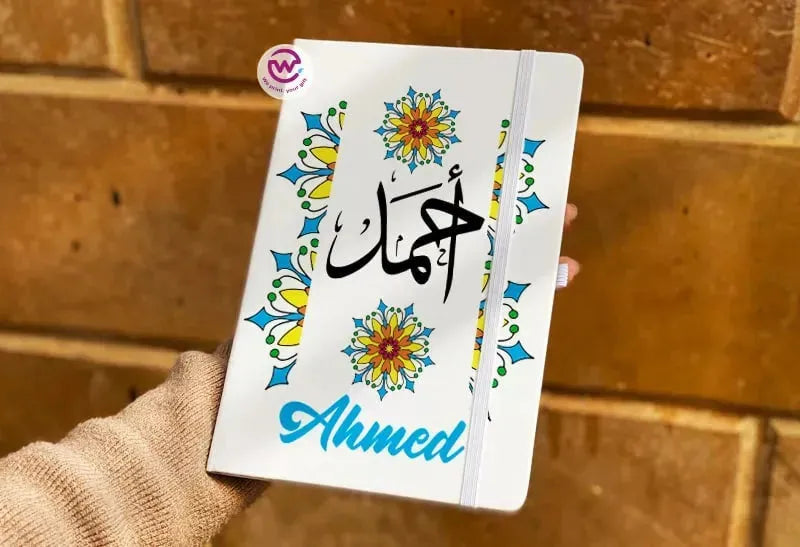 We print your gift
أحمد
Ahmed